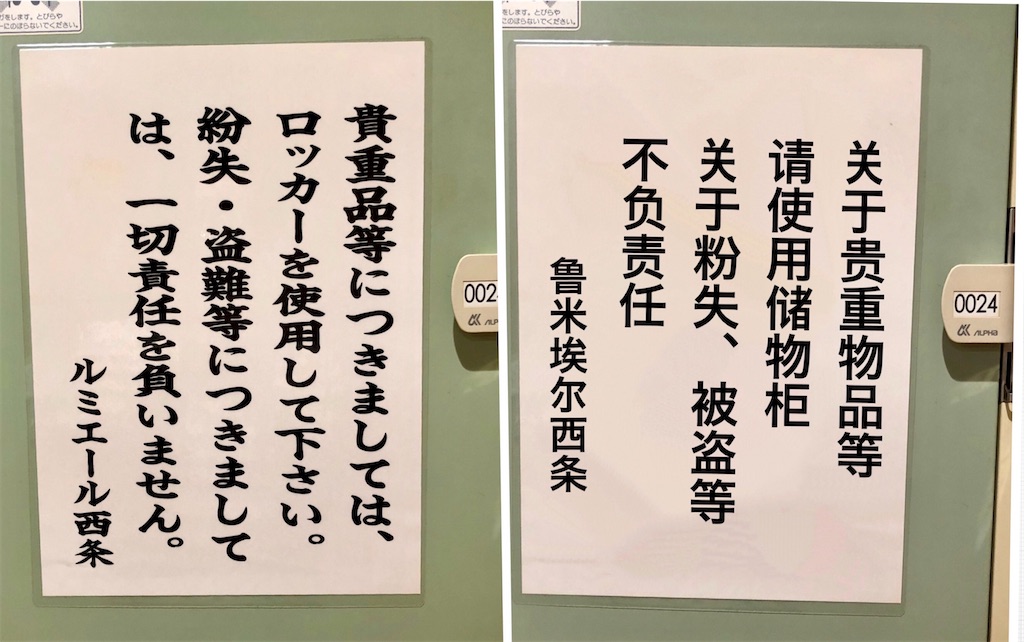 をします。とびらや
ーにのぼらないでください。
貴重品等につきましては、
ロッカーを使用して下さい。
紛失・盗難等につきまして
は、一切責任を負いません。
ルミエール西条
002
ALP
をします。とびらや
ーにのぼらないでください。
关于贵重物品等
请使用储物柜
关于粉失、被盗等
不负责任
鲁米埃尔西条
0024
ALPHA